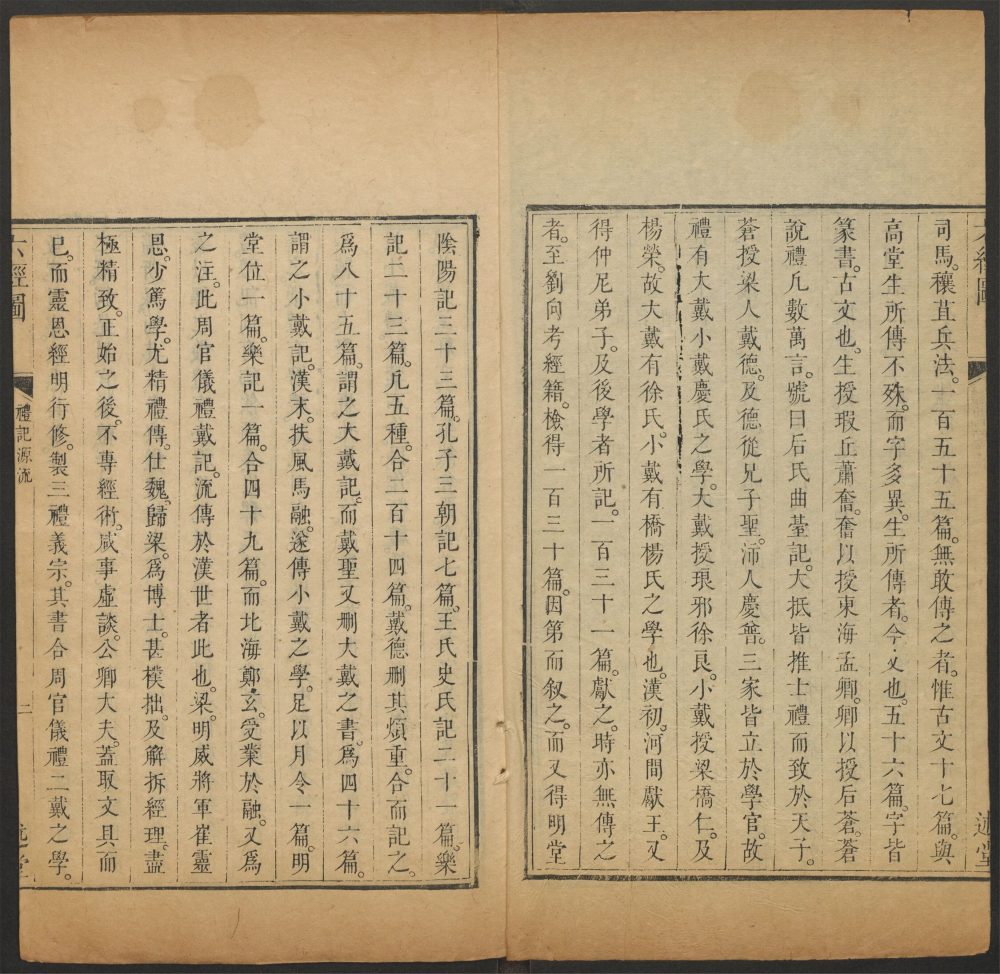 司馬。穰苴兵法。一百五十五篇。無敢傳之者。惟古文十七篇。與
高堂生所傳不殊。而字多異。生所傳者。今文也。五十六篇。字皆
篆書。古文也。生授瑕丘蕭奮。奮以授東海孟卿。卿以授后蒼。蒼
說禮凢數萬言。號曰后氏曲臺記。大抵皆推士禮而致於天子。
蒼授梁人戴德。及德從兄子聖。沛人慶普。三家皆立於學官。故
禮有大戴小戴慶氏之學。大戴授琅邪徐良。小戴授梁橋仁。及
楊榮。故大戴有徐氏。小戴有橋楊氏之學也。漢初。河間獻王。又
得仲尼弟子。及後學者所記。一百三十一篇。獻之。時亦無傳之
者。至劉向考經籍。檢得一百三十篇。因第而叙之。而又得明堂
陰陽記三十三篇。孔子三朝記七篇。王氏史氏記二十一篇。樂
記二十三篇。凢五種。合二百十四篇。戴德刪其煩重。合而記之。
爲八十五篇。謂之大戴記。而戴聖又刪大戴之書。爲四十六篇。
謂之小戴記。漢末。扶風馬融。遂傳小戴之學。足以月令一篇。明
堂位一篇。樂記一篇。合四十九篇。而北海鄭玄。受業於融。又爲
之注。此周官儀禮戴記。流傳於漢世者此也。梁。明威將軍崔靈
恩。少篤學。尤精禮傳。仕魏。歸梁。爲博士。甚樸拙。及解拆經理。盡
極精致。正始之後。不專經術。咸事虛談。公卿大夫。蓋取文具而
已。而靈恩經明行修。製三禮義宗。其書合周官儀禮二戴之學。
六經圖
禮記源流
二